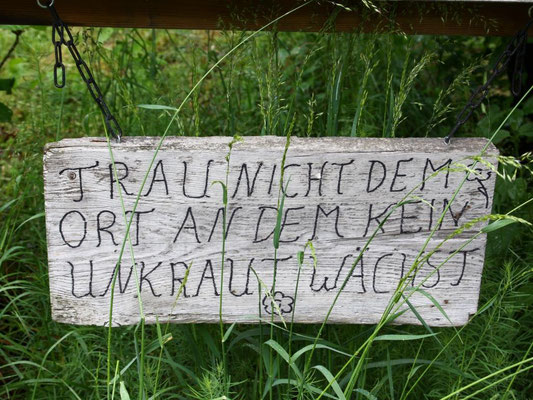 TRAU NICHT DEM
ORT AN DEM KEIN
UNKRAUT WÄCHST